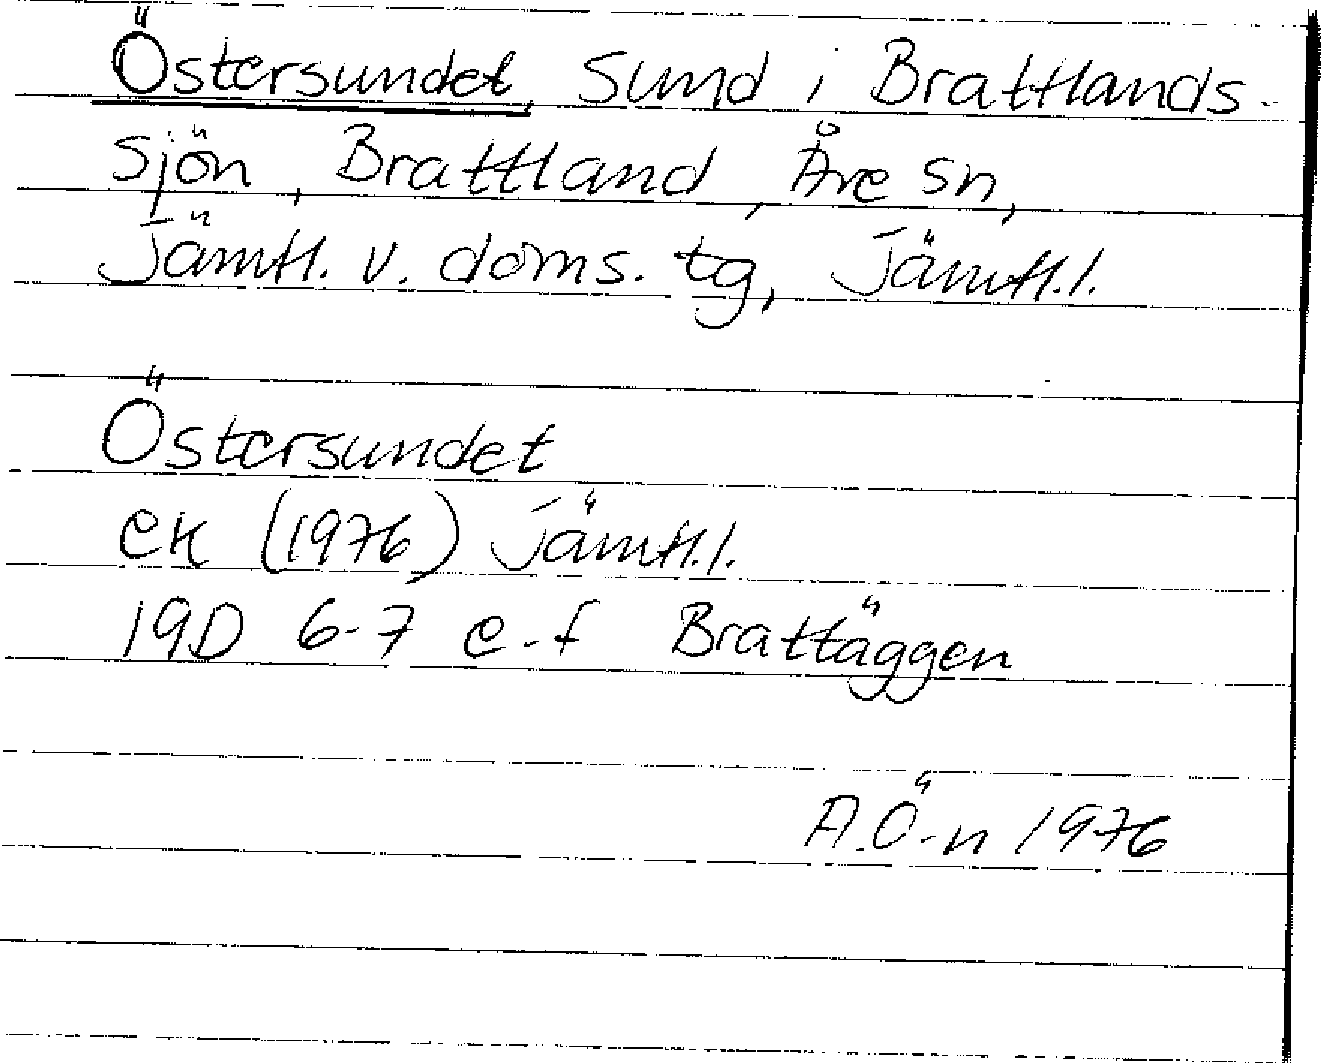 Östersundet, Sund i Brattlands-
sjön, Brattland, Åre sn,
Jämtl. v. doms. tg, Jämtl.l.
Östersundet
ek (1976) Jämtl.l.
19D 6-7 e-f Brattäggen
A.Ö-n 1976